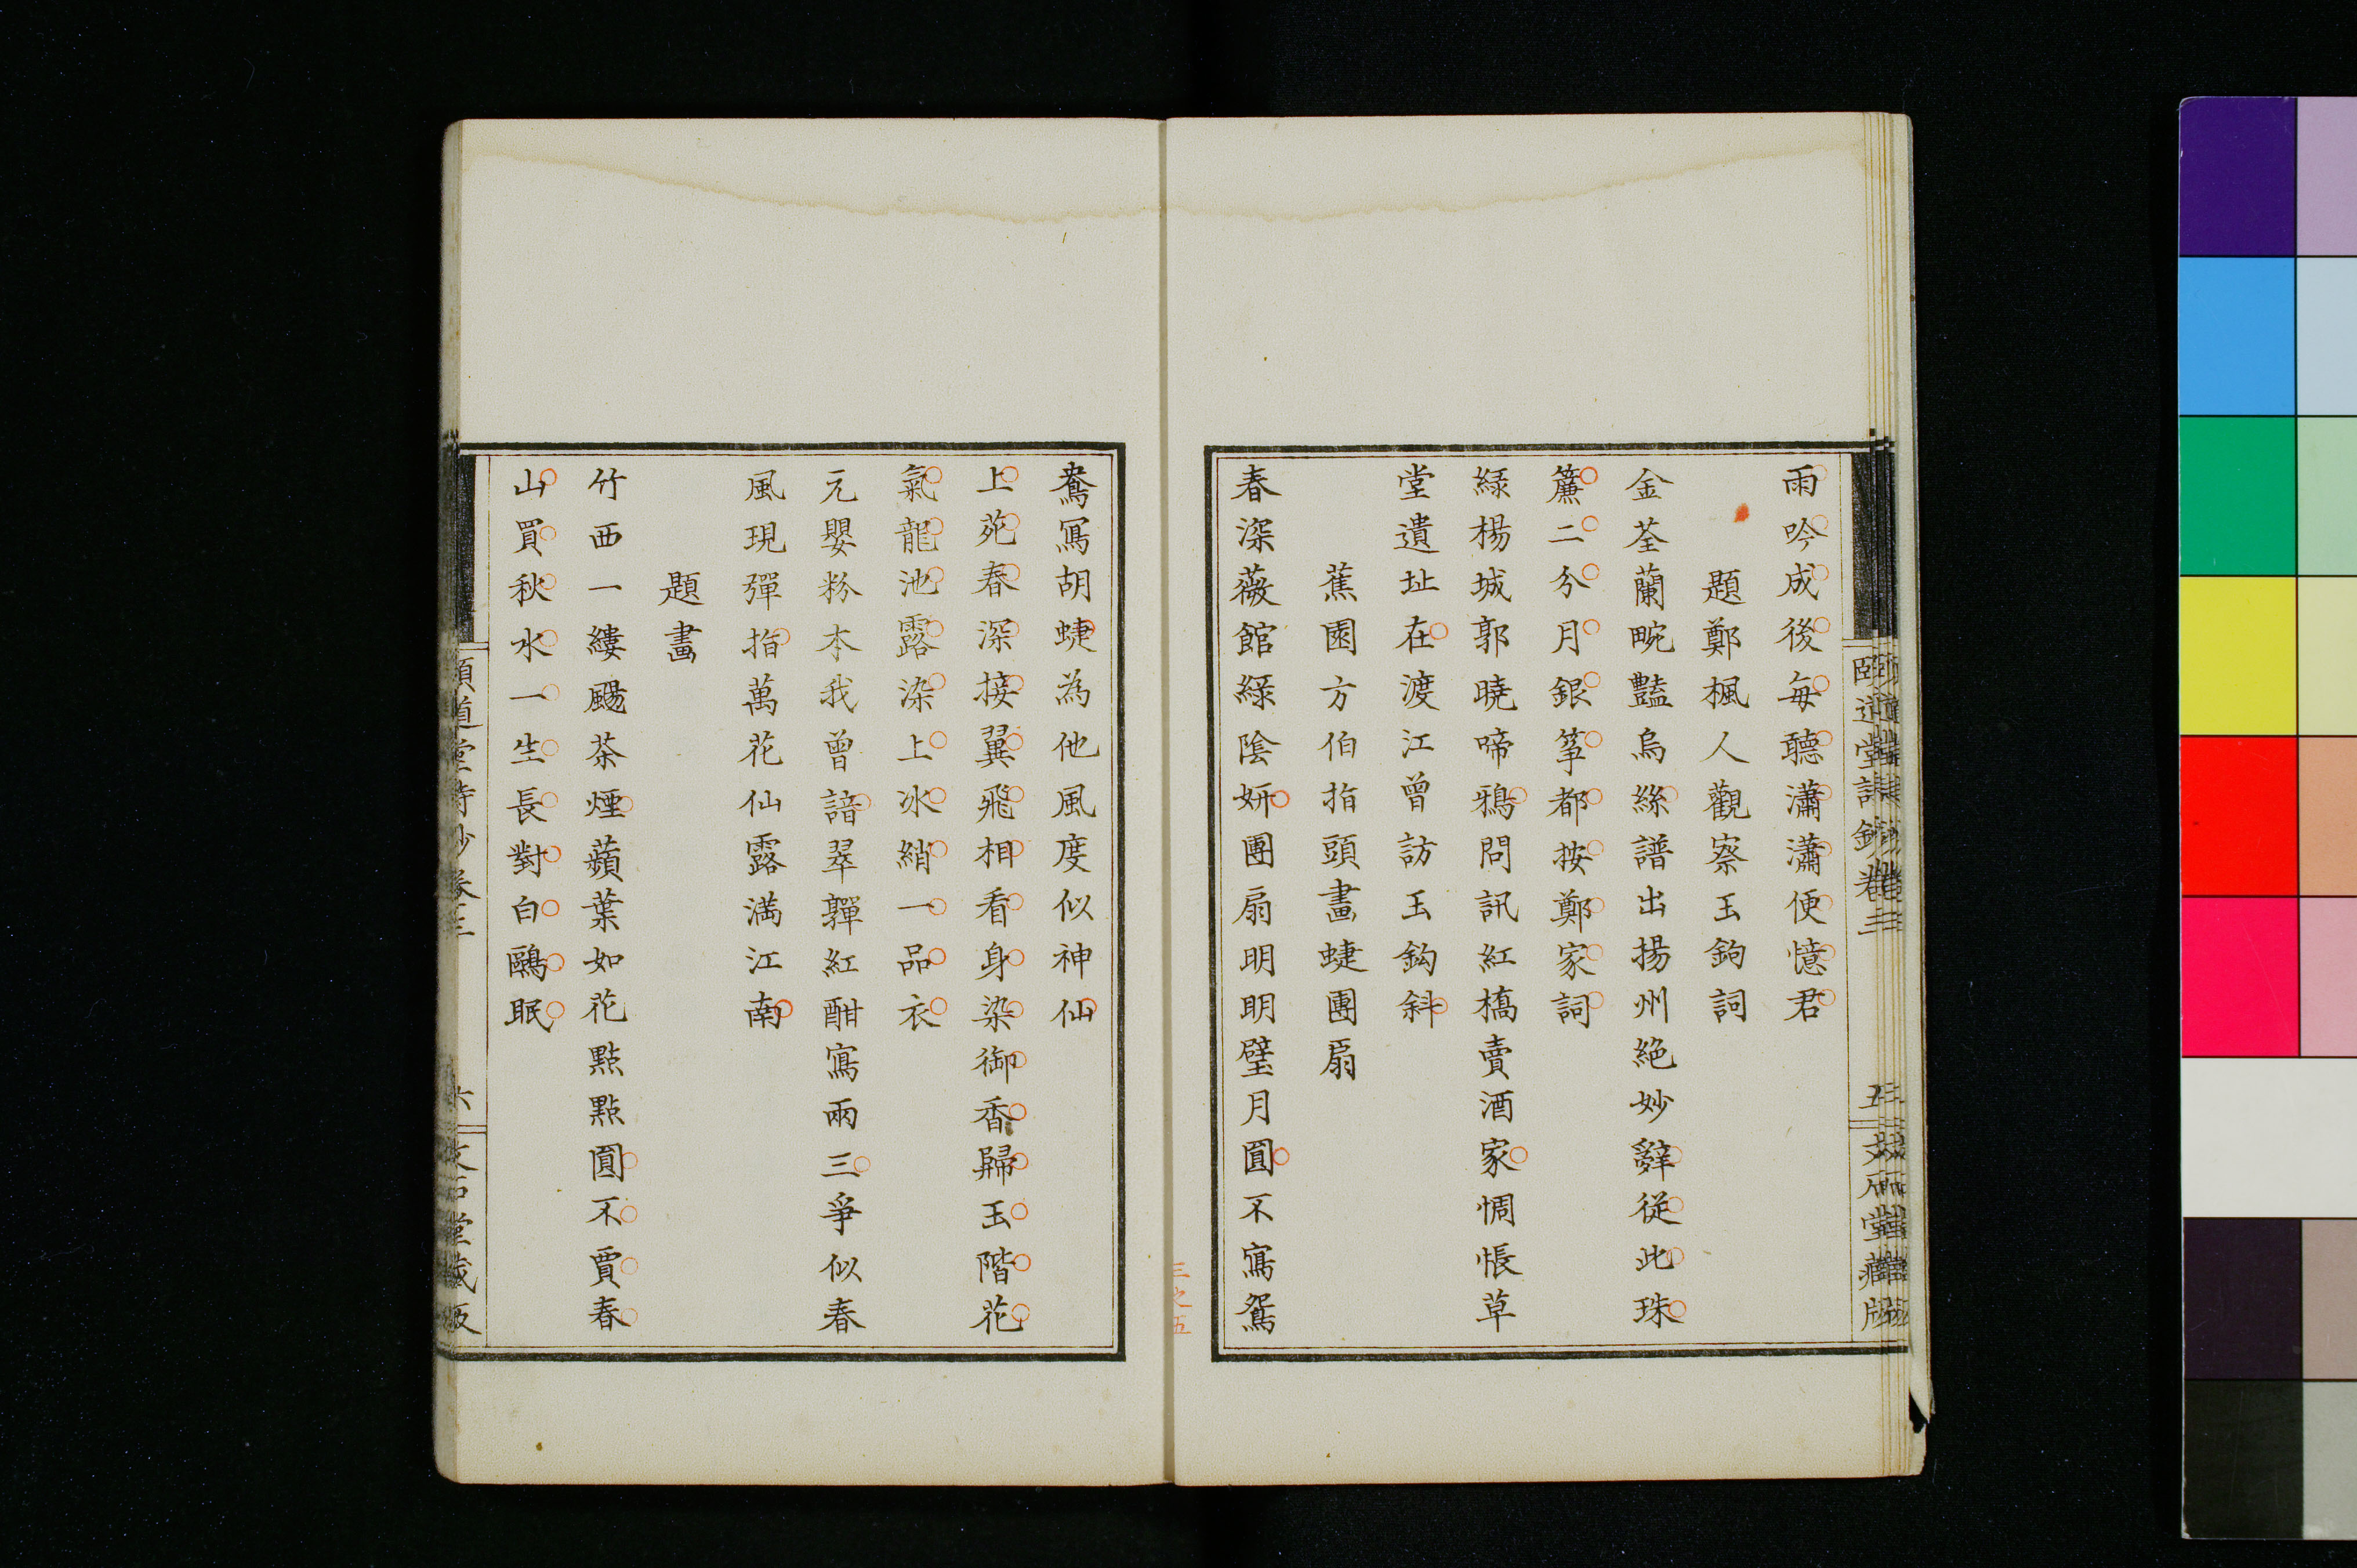 雨吟成後每聽瀟瀟便憶君
題鄭楓人觀察玉鉤詞
金荃蘭畹豔烏絲譜出揚州絕妙辭從此珠
簾二分月銀筝都按鄭家詞
緑楊城郭曉啼鴉問訊紅橋賣酒家惆悵草
堂遺址在渡江曾訪玉鈎斜
蕉園方伯指頭畫蜨團扇
春深薇館緑陰妍團扇明明璧月圓不寫鴛
鴦冩胡蜨為他風度似神仙
上苑春深接翼飛相看身染御香歸玉階花
氣龍池露染上冰綃一品衣
元嬰粉本我曾諳翠嚲紅酣寫兩三爭似春
風現彈指萬花仙露滿江南
題畫
竹西一縷颺茶煙蘋葉如花點點圓不買春
山買秋水一生長對白鷗眠
頤道堂詩鈔卷三
六
文石堂藏版
三之五